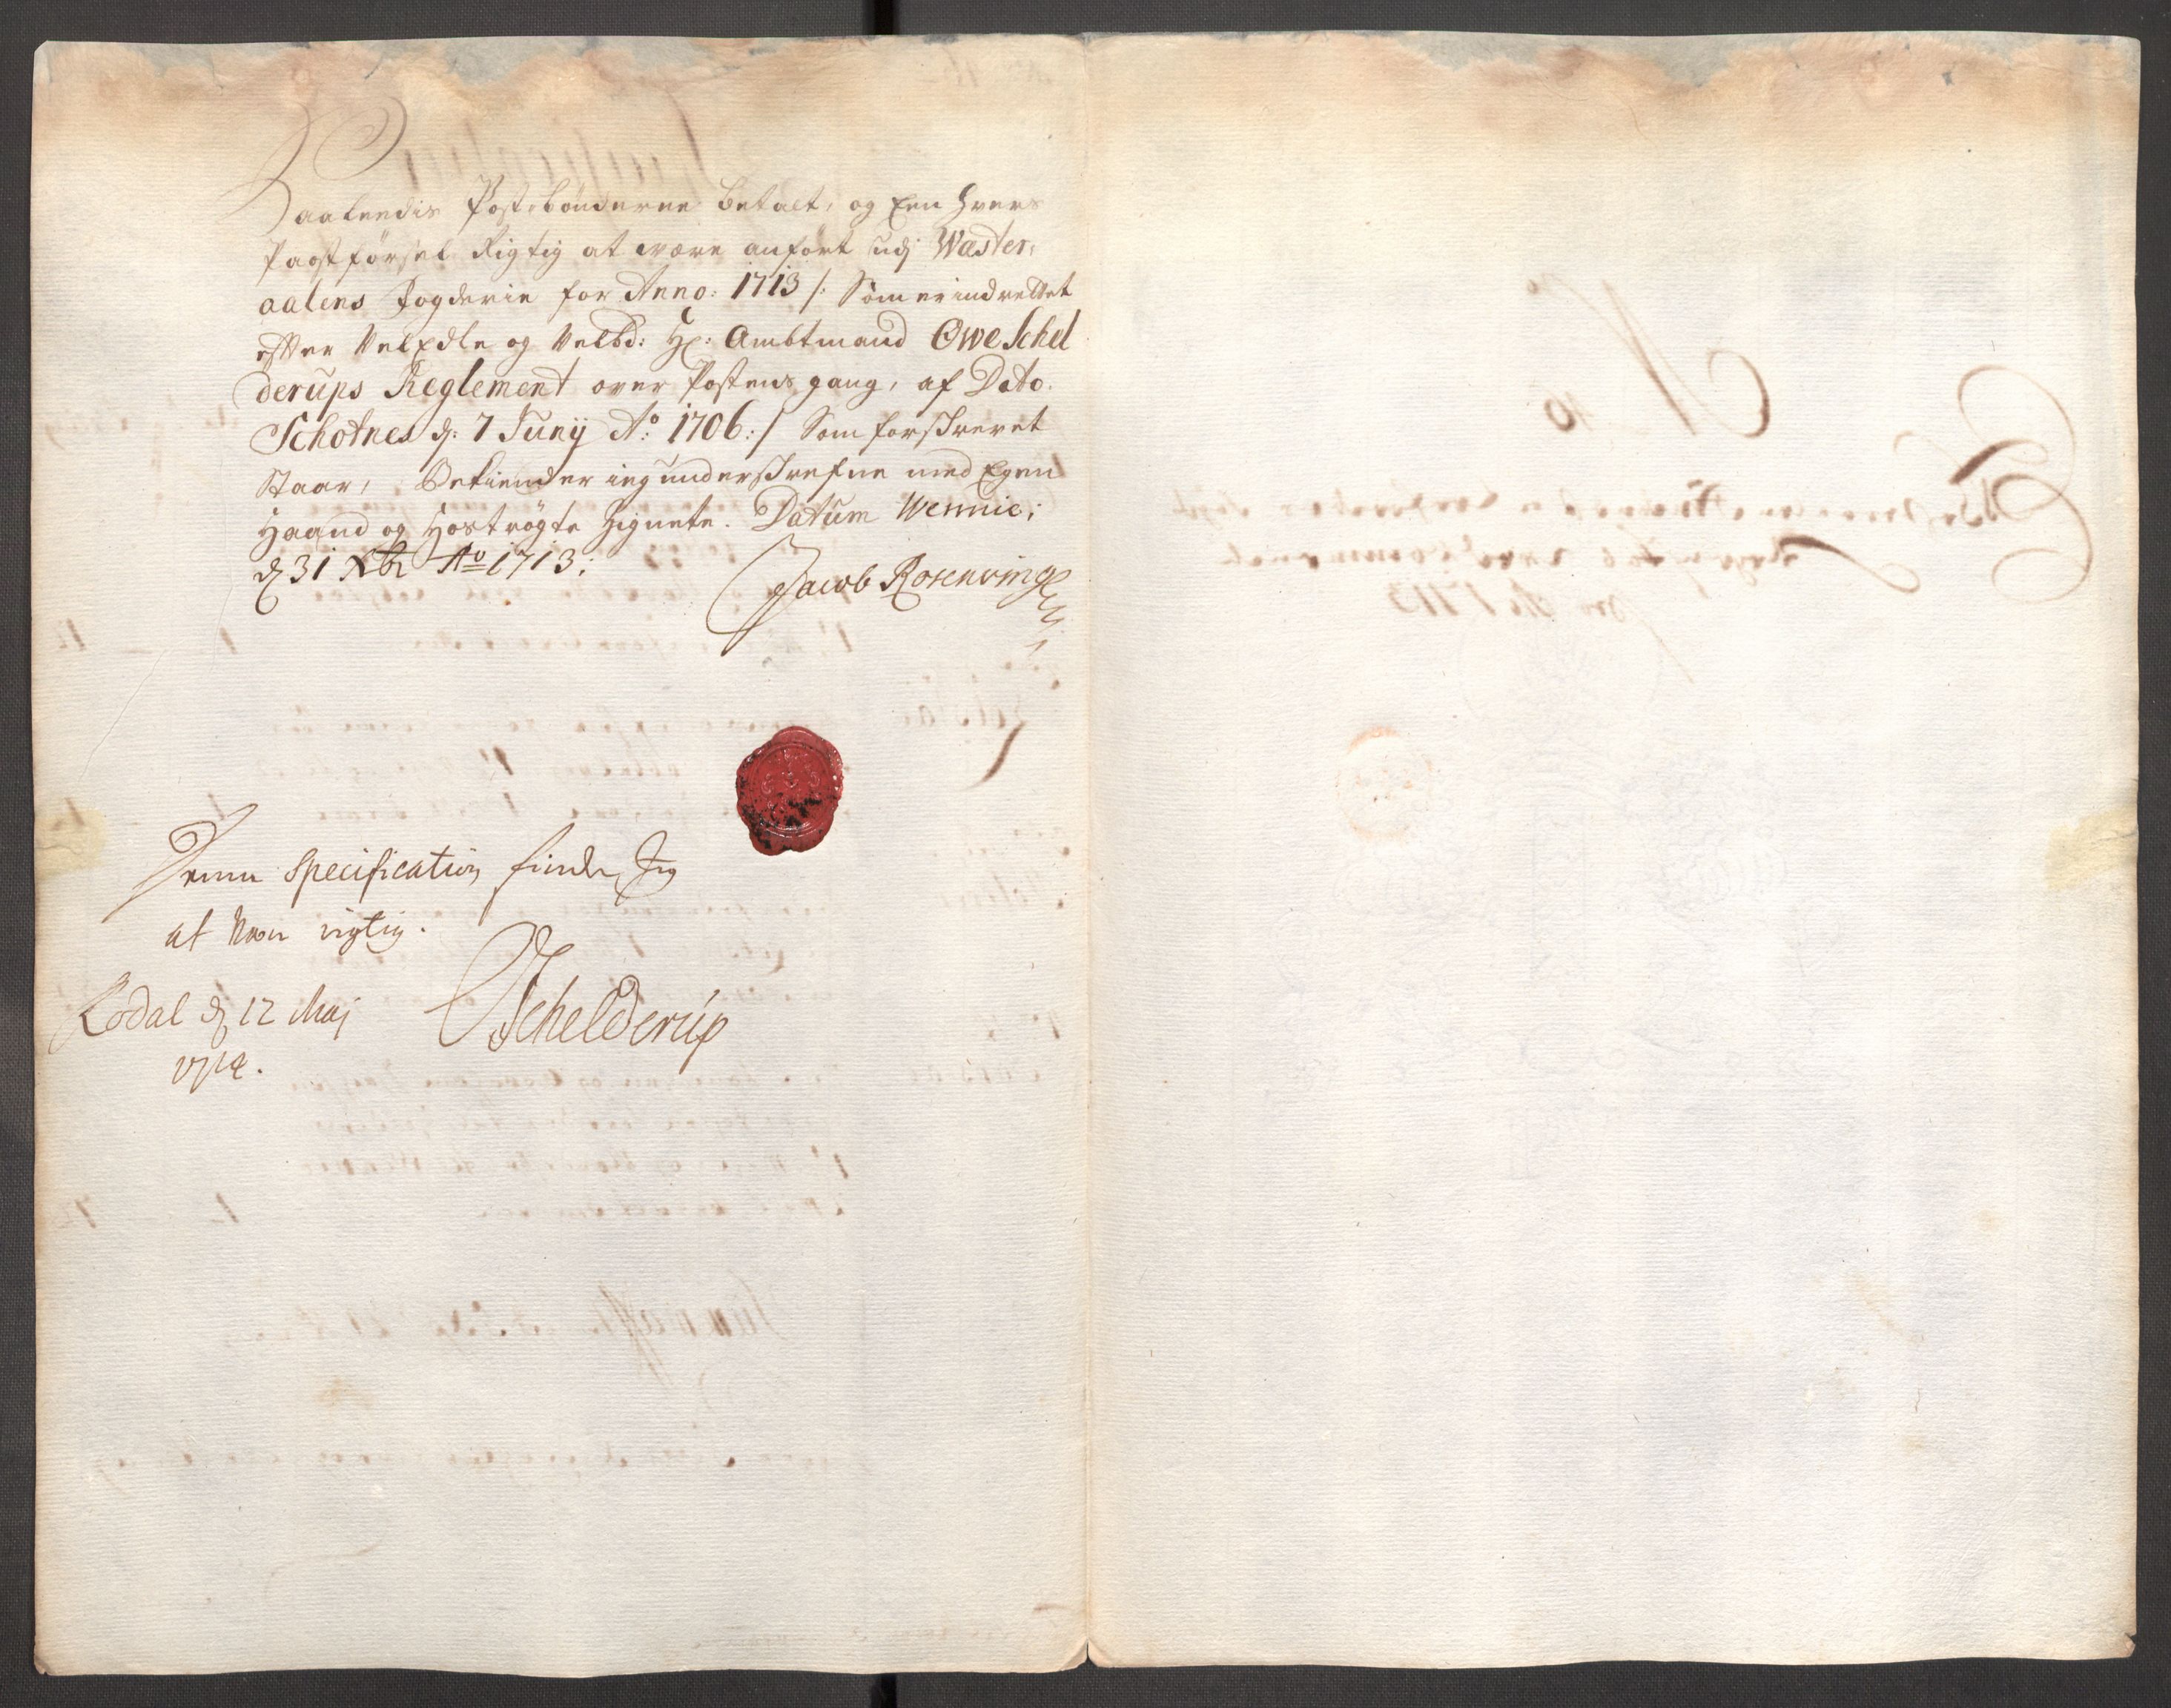 Saaledis Postebønderne betalt, og Een hvers
Postførsel Rigtig at være anført udj Wæster,
aalens Fogderie for Anno: 1713 /: Som er indrettet
efter Velædle og Velbd: Hr: Ambtmand Owe Schel
derups Reglement over Postens gang, af Dato.
Schotnes d: 7 Junij Ao: 1706 :/ Som forskrevet
Staar, Bekiender ieg underskrefne med Egen
Haand og Hostrøgte Zignete. Datum Wennie;
d 31 Xbr Ao 1713:
Jacob Rosenvinge
Denne Specification finder Jeg
at være rigtig.
Rodal d 12 Maj
1714.
OSchelderup